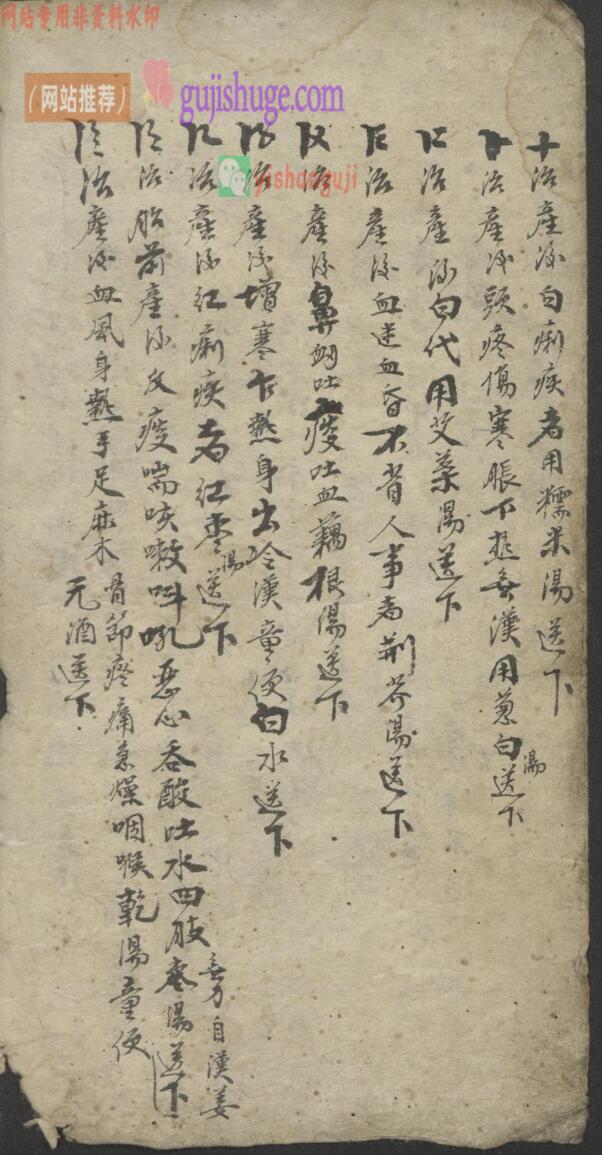 网站专用非资料水印
（网站推荐）
gujishuge.com
十治產後白痢疾者用糯米湯送下
治產後頭疼傷寒脹下熱無漢用蔥白湯送下
治產後白代用艾葉湯送下
治產後血迷血昏不省人事者荊芥湯送下
治產後鼻衄吐痰吐血藕根湯送下
治產後增寒乍熱身出冷漢童便白水送下
治產後紅痢疾者紅棗湯送下
治胎前產後反痰喘咳嗽吽吼惡心吞酸吐水四肢無力自漢姜棗湯送下
治產後血風身熱手足麻木骨節疼痛急燥咽喉乾湯童便
元酒送下